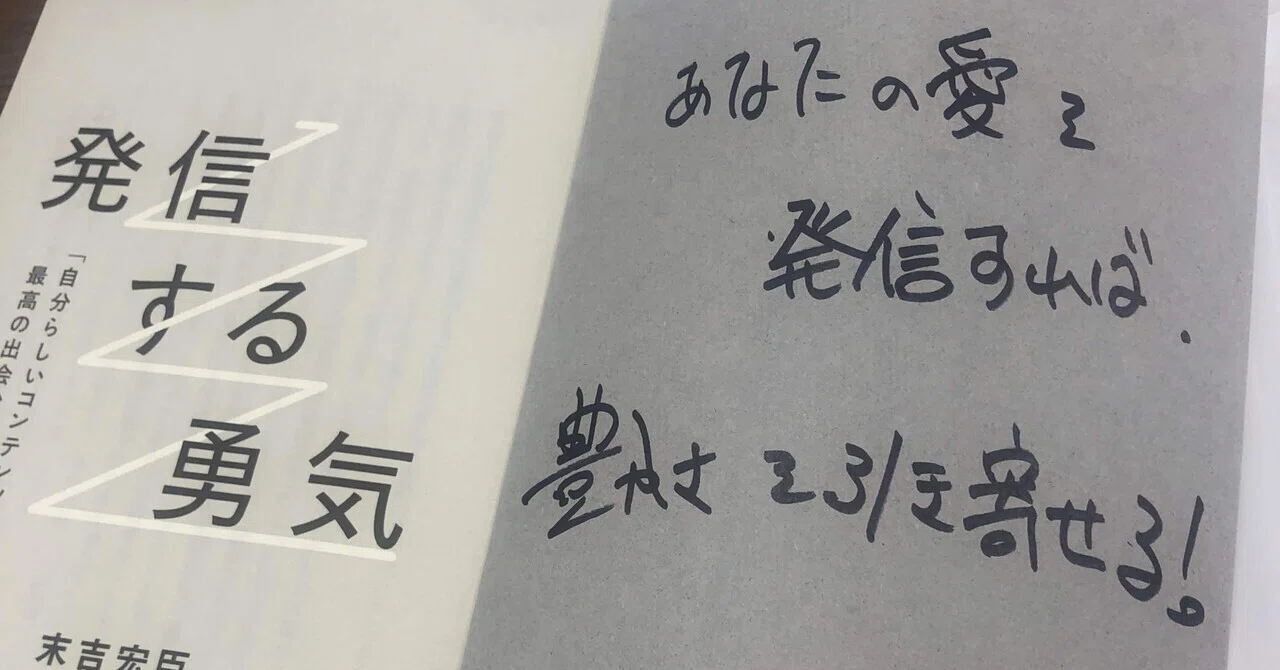 発信
する
勇気
「自分らしいコンテンツ
最高の出会
末吉宏臣
あなたの愛を
発信すれば、
豊かさを引き寄せる!